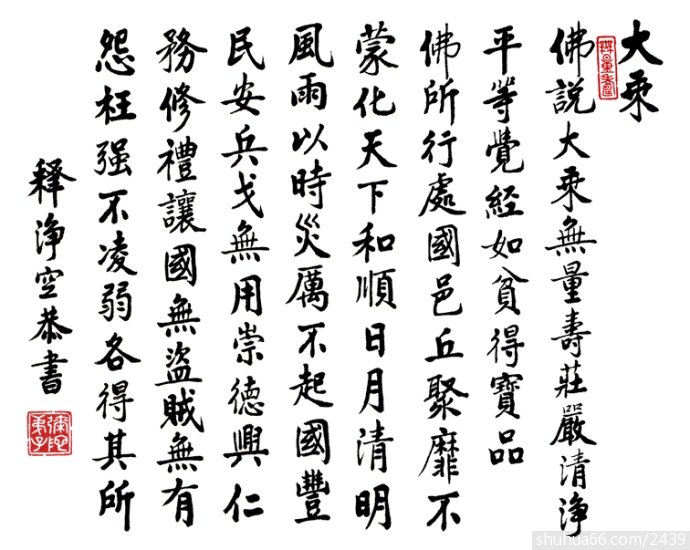 大乘
佛説大乘無量壽莊嚴清浄
平等覺經如貧得寶品
佛所行處國邑丘聚靡不
蒙化天下和順日月清明
風雨以時災厲不起國豐
民安兵戈無用崇德興仁
務修禮讓國無盜賊無有
怨枉强不凌弱各得其所
释浄空恭書
shuhua66.com/2439